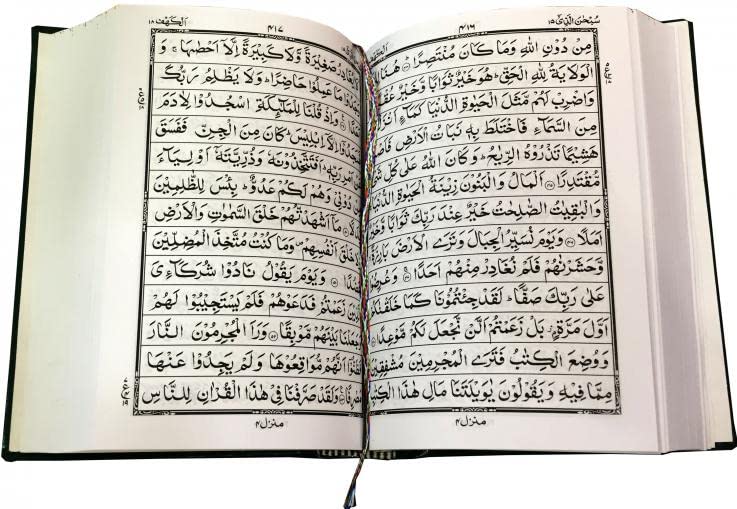 سُبْحٰنَ الَّذِیْۤ ۱۵
۴۱۶
مِنْ دُوْنِ اللّٰهِ وَمَا كَانَ مُنْتَصِرًا
الْوَلَايَةُ لِلّٰهِ الْحَقِّ ؕ هُوَ خَيْرٌ ثَوَابًا وَّخَيْرٌ
وَاضْرِبْ لَهُمْ مَّثَلَ الْحَيٰوةِ الدُّنْيَا كَمَآءٍ
مِنَ السَّمَآءِ فَاخْتَلَطَ بِهٖ نَبَاتُ الْاَرْضِ
هَشِيْمًا تَذْرُوْهُ الرِّيٰحُ ؕ وَكَانَ اللّٰهُ عَلٰى كُلِّ
مُّقْتَدِرًا ﴿۴۵﴾ اَلْمَالُ وَالْبَنُوْنَ زِيْنَةُ الْحَيٰوةِ الدُّنْيَا
وَالْبٰقِيٰتُ الصّٰلِحٰتُ خَيْرٌ عِنْدَ رَبِّكَ ثَوَابًا وَّخَيْرٌ
اَمَلًا ﴿۴۶﴾ وَيَوْمَ نُسَيِّرُ الْجِبَالَ وَتَرَى الْاَرْضَ
وَّحَشَرْنٰهُمْ فَلَمْ نُغَادِرْ مِنْهُمْ اَحَدًا ﴿۴۷﴾
عَلٰى رَبِّكَ صَفًّا ؕ لَقَدْ جِئْتُمُوْنَا كَمَا
اَوَّلَ مَرَّةٍۭ بَلْ زَعَمْتُمْ اَلَّنْ نَّجْعَلَ لَكُمْ مَّوْعِدًا
وَوُضِعَ الْكِتٰبُ فَتَرَى الْمُجْرِمِيْنَ مُشْفِقِيْنَ
مِمَّا فِيْهِ وَيَقُوْلُوْنَ يٰوَيْلَتَنَا مَالِ هٰذَا
منزل ۴
۴۱۷
اَلْكَهْف ۱۸
صَغِيْرَةً وَّلَا كَبِيْرَةً اِلَّاۤ اَحْصٰىهَا ۚ وَ
مَا عَمِلُوْا حَاضِرًا ؕ وَلَا يَظْلِمُ رَبُّكَ
وَاِذْ قُلْنَا لِلْمَلٰٓئِكَةِ اسْجُدُوْا لِاٰدَمَ
اِلَّاۤ اِبْلِيْسَ ؕ كَانَ مِنَ الْجِنِّ فَفَسَقَ
اَمْرِ رَبِّهٖ ؕ اَفَتَتَّخِذُوْنَهٗ وَذُرِّيَّتَهٗۤ اَوْلِيَآءَ
دُوْنِيْ وَهُمْ لَكُمْ عَدُوٌّ ؕ بِئْسَ لِلظّٰلِمِيْنَ
مَاۤ اَشْهَدْتُّهُمْ خَلْقَ السَّمٰوٰتِ وَالْاَرْضِ
خَلْقَ اَنْفُسِهِمْ ۪ وَمَا كُنْتُ مُتَّخِذَ الْمُضِلِّيْنَ
وَيَوْمَ يَقُوْلُ نَادُوْا شُرَكَآءِيَ
زَعَمْتُمْ فَدَعَوْهُمْ فَلَمْ يَسْتَجِيْبُوْا لَهُمْ
وَجَعَلْنَا بَيْنَهُمْ مَّوْبِقًا ﴿۵۲﴾ وَرَاَ الْمُجْرِمُوْنَ النَّارَ
فَظَنُّوْۤا اَنَّهُمْ مُّوَاقِعُوْهَا وَلَمْ يَجِدُوْا عَنْهَا
مَصْرِفًا ﴿۵۳﴾ وَلَقَدْ صَرَّفْنَا فِيْ هٰذَا الْقُرْاٰنِ لِلنَّاسِ
منزل ۴